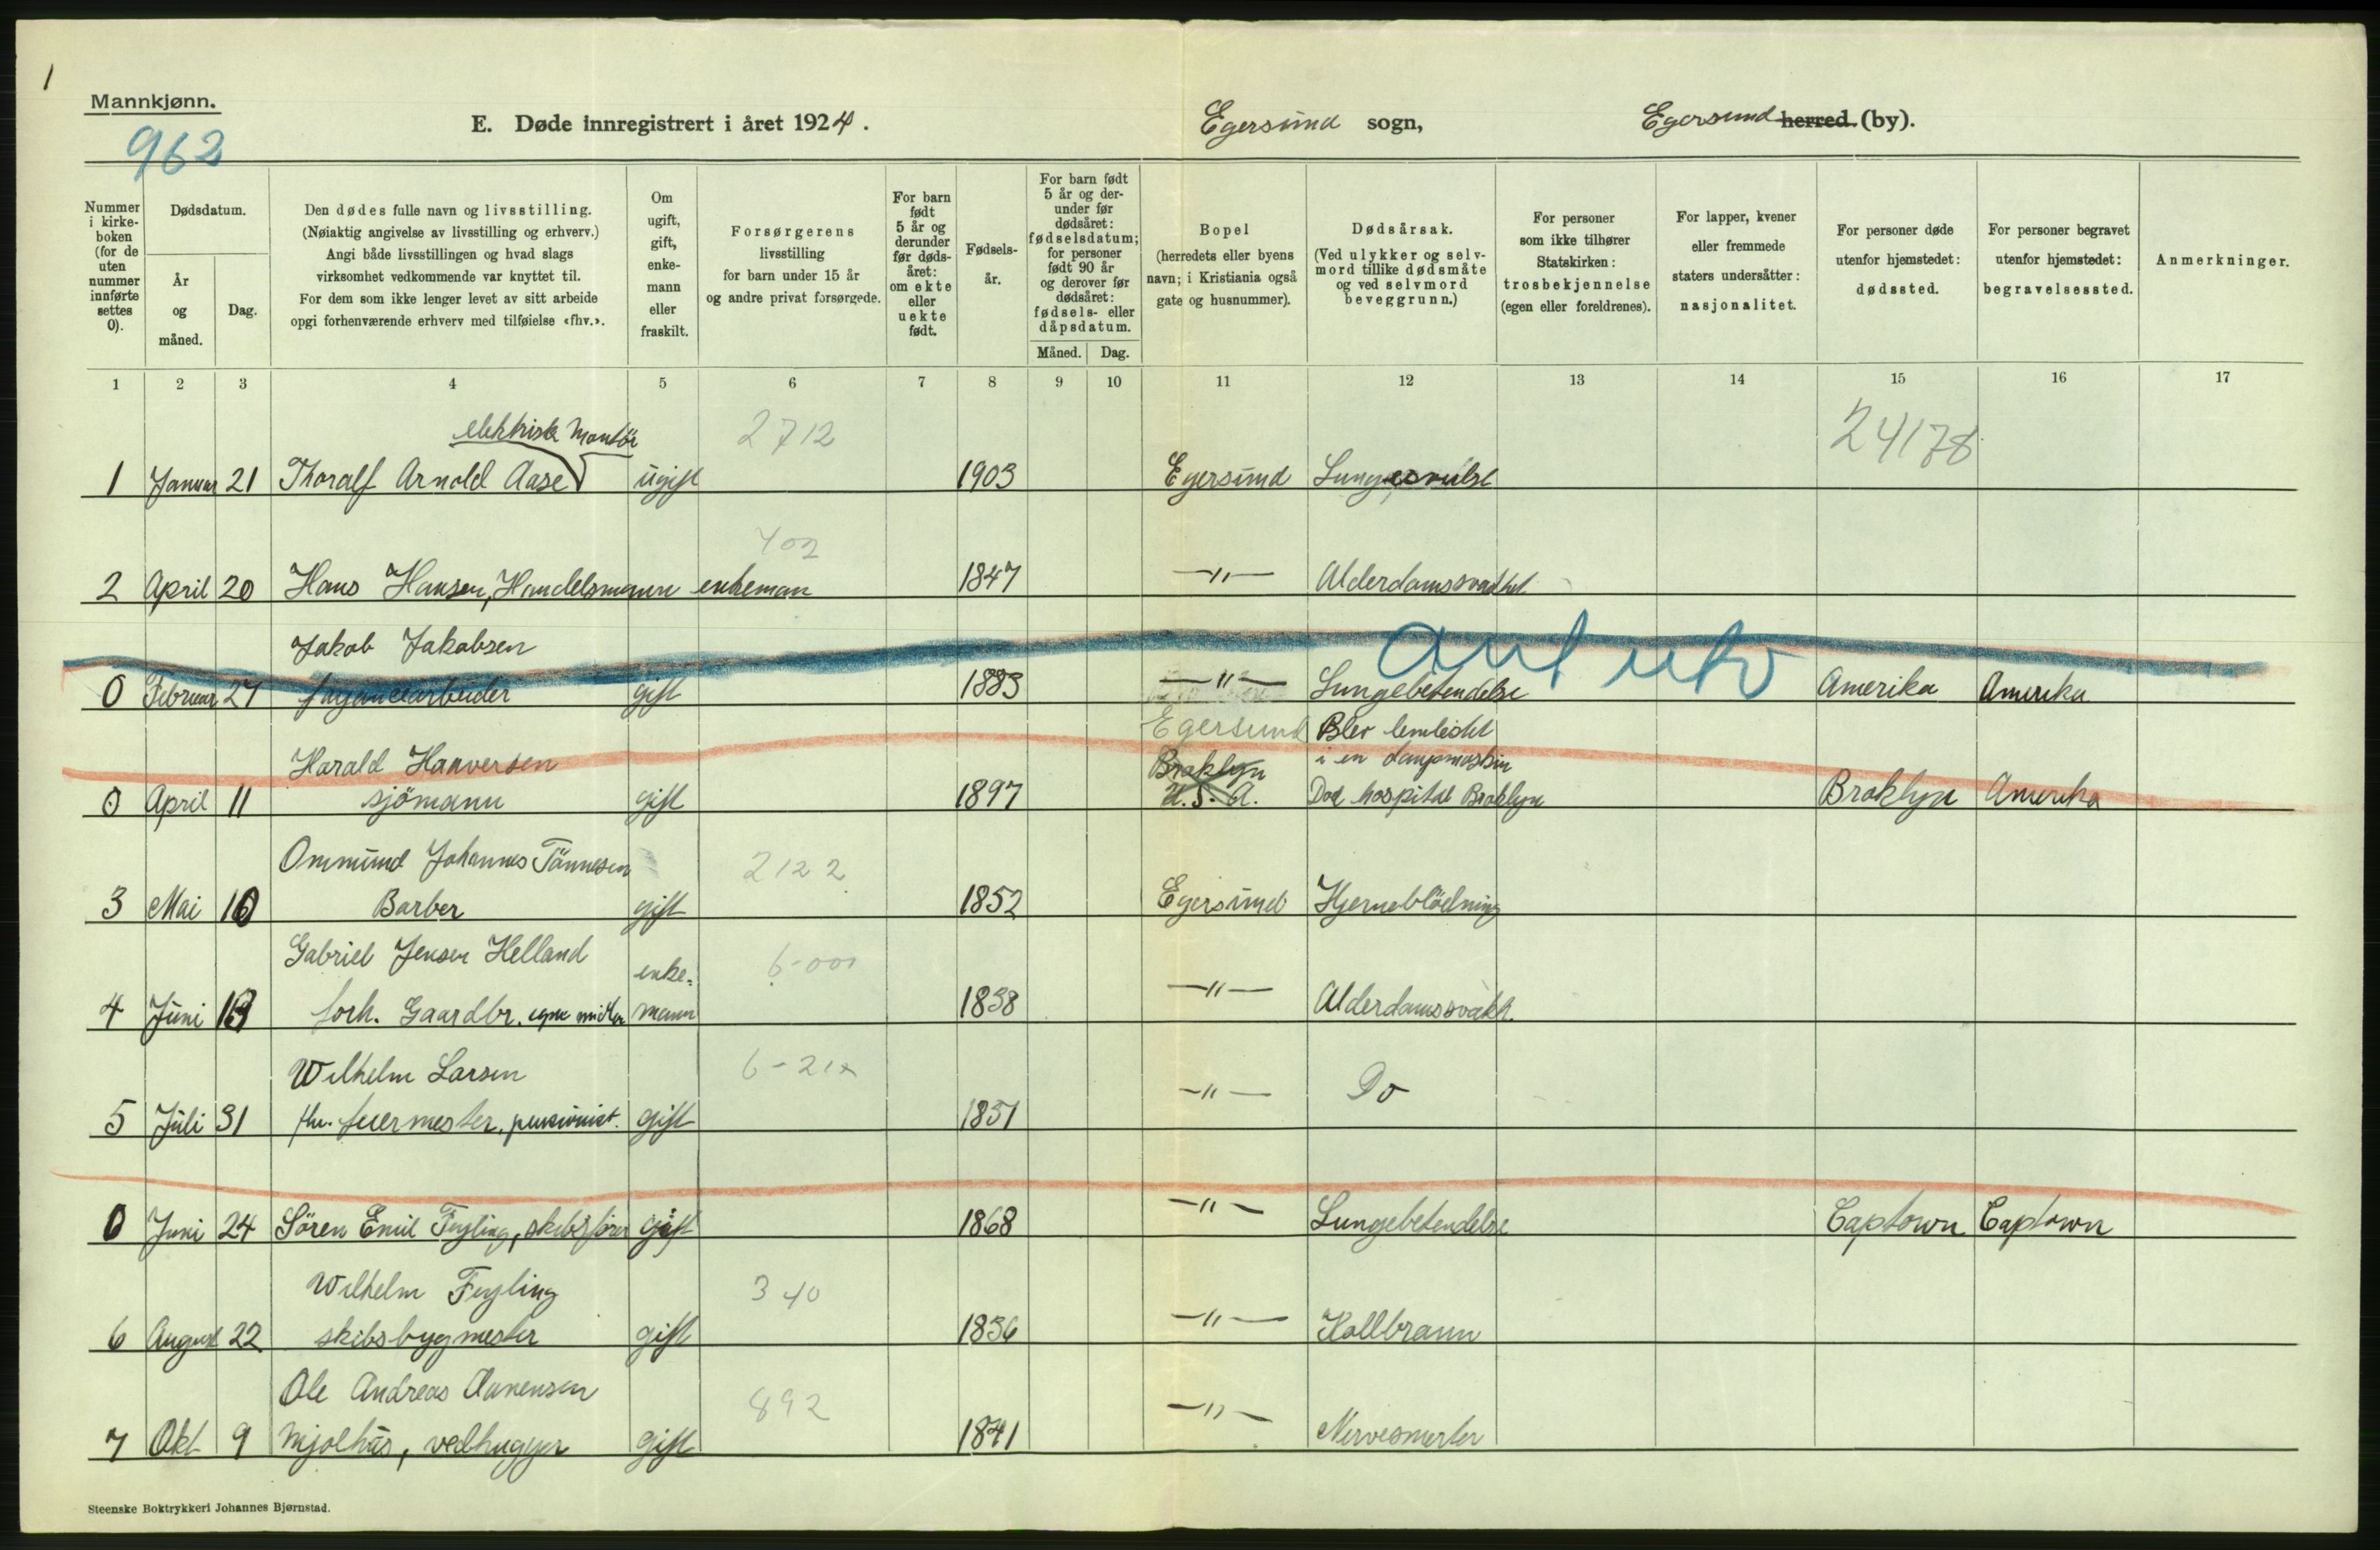 1
Mannkjønn.
962
E. Døde innregistrert i året 1924.
Egersund sogn,
Egersund herred (by).
Nummer i kirkeboken (for de uten nummer innførte settes 0).
Dødsdatum.
År og måned.
Dag.
Den dødes fulle navn og livsstilling.
(Nøiaktig angivelse av livsstilling og erhverv.)
Angi både livsstillingen og hvad slags
virksomhet vedkommende var knyttet til.
For dem som ikke lenger levet av sitt arbeide
opgi forhenværende erhverv med tilføielse «fhv.».
Om ugift, gift, enkemann eller fraskilt.
Forsørgerens
livsstilling
for barn under 15 år
og andre privat forsørgede.
For barn født 5 år og derunder før dødsåret: om ekte eller uekte født.
Fødselsår.
For barn født 5 år og derunder før dødsåret: fødselsdatum; for personer født 90 år og derover før dødsåret: fødsels- eller dåpsdatum.
Måned.
Dag.
Bopel
(herredets eller byens
navn; i Kristiania også
gate og husnummer).
Dødsårsak.
(Ved ulykker og selvmord tillike dødsmåte og ved selvmord beveggrunn.)
For personer
som ikke tilhører
Statskirken:
trosbekjennelse
(egen eller foreldrenes).
For lapper, kvener
eller fremmede
staters undersåtter:
nasjonalitet.
For personer døde
utenfor hjemstedet:
dødssted.
For personer begravet
utenfor hjemstedet:
begravelsessted.
Anmerkninger.
1 2 3 4 5 6 7 8 9 10 11 12 13 14 15 16 17
elektrisk Montör 2712 24178
1 Januar 21 Thoralf Arnold Aase ugift 1903 Egersund Lungesvulst
402
2 April 20 Hans Hansen, Handelsmann enkeman 1847 —"— Alderdomssvadhet
Jakob Jakobsen
0 Februar 27 fayancearbeider gift 1883 —"— Lungebetendelse Amerika Amerika
Egersund Blev lemlestet
Harald Hanversen Broklyn i en dampmaskin
0 April 11 sjömann gift 1897 U.S.A. Död hospital Broklyn Broklyn Amerika
Ommund Johannes Tönnesen 2122
3 Mai 10 Barber gift 1852 Egersund Hjerneblödning
Gabriel Jensen Helland enke- 6-000
4 Juni 13 forh. Gaardbr. egne midler mann 1838 —"— Alderdomssvakh.
Wilhelm Larsen 6-21x
5 Juli 31 fhv. fuermester, pensionist. gift 1851 —"— Do
0 Juni 24 Sören Emil Feyling, skibsförer gift 1868 —"— Lungebetendelse Captown Captown
Wilhelm Feyling 340
6 August 22 skibsbygmester gift 1836 —"— Kollbrann
Ole Andreas Aanensen 892
7 Okt 9 Mjolhus, vedhugger gift 1841 —"— Nervesmerter
Steenske Boktrykkeri Johannes Bjørnstad.